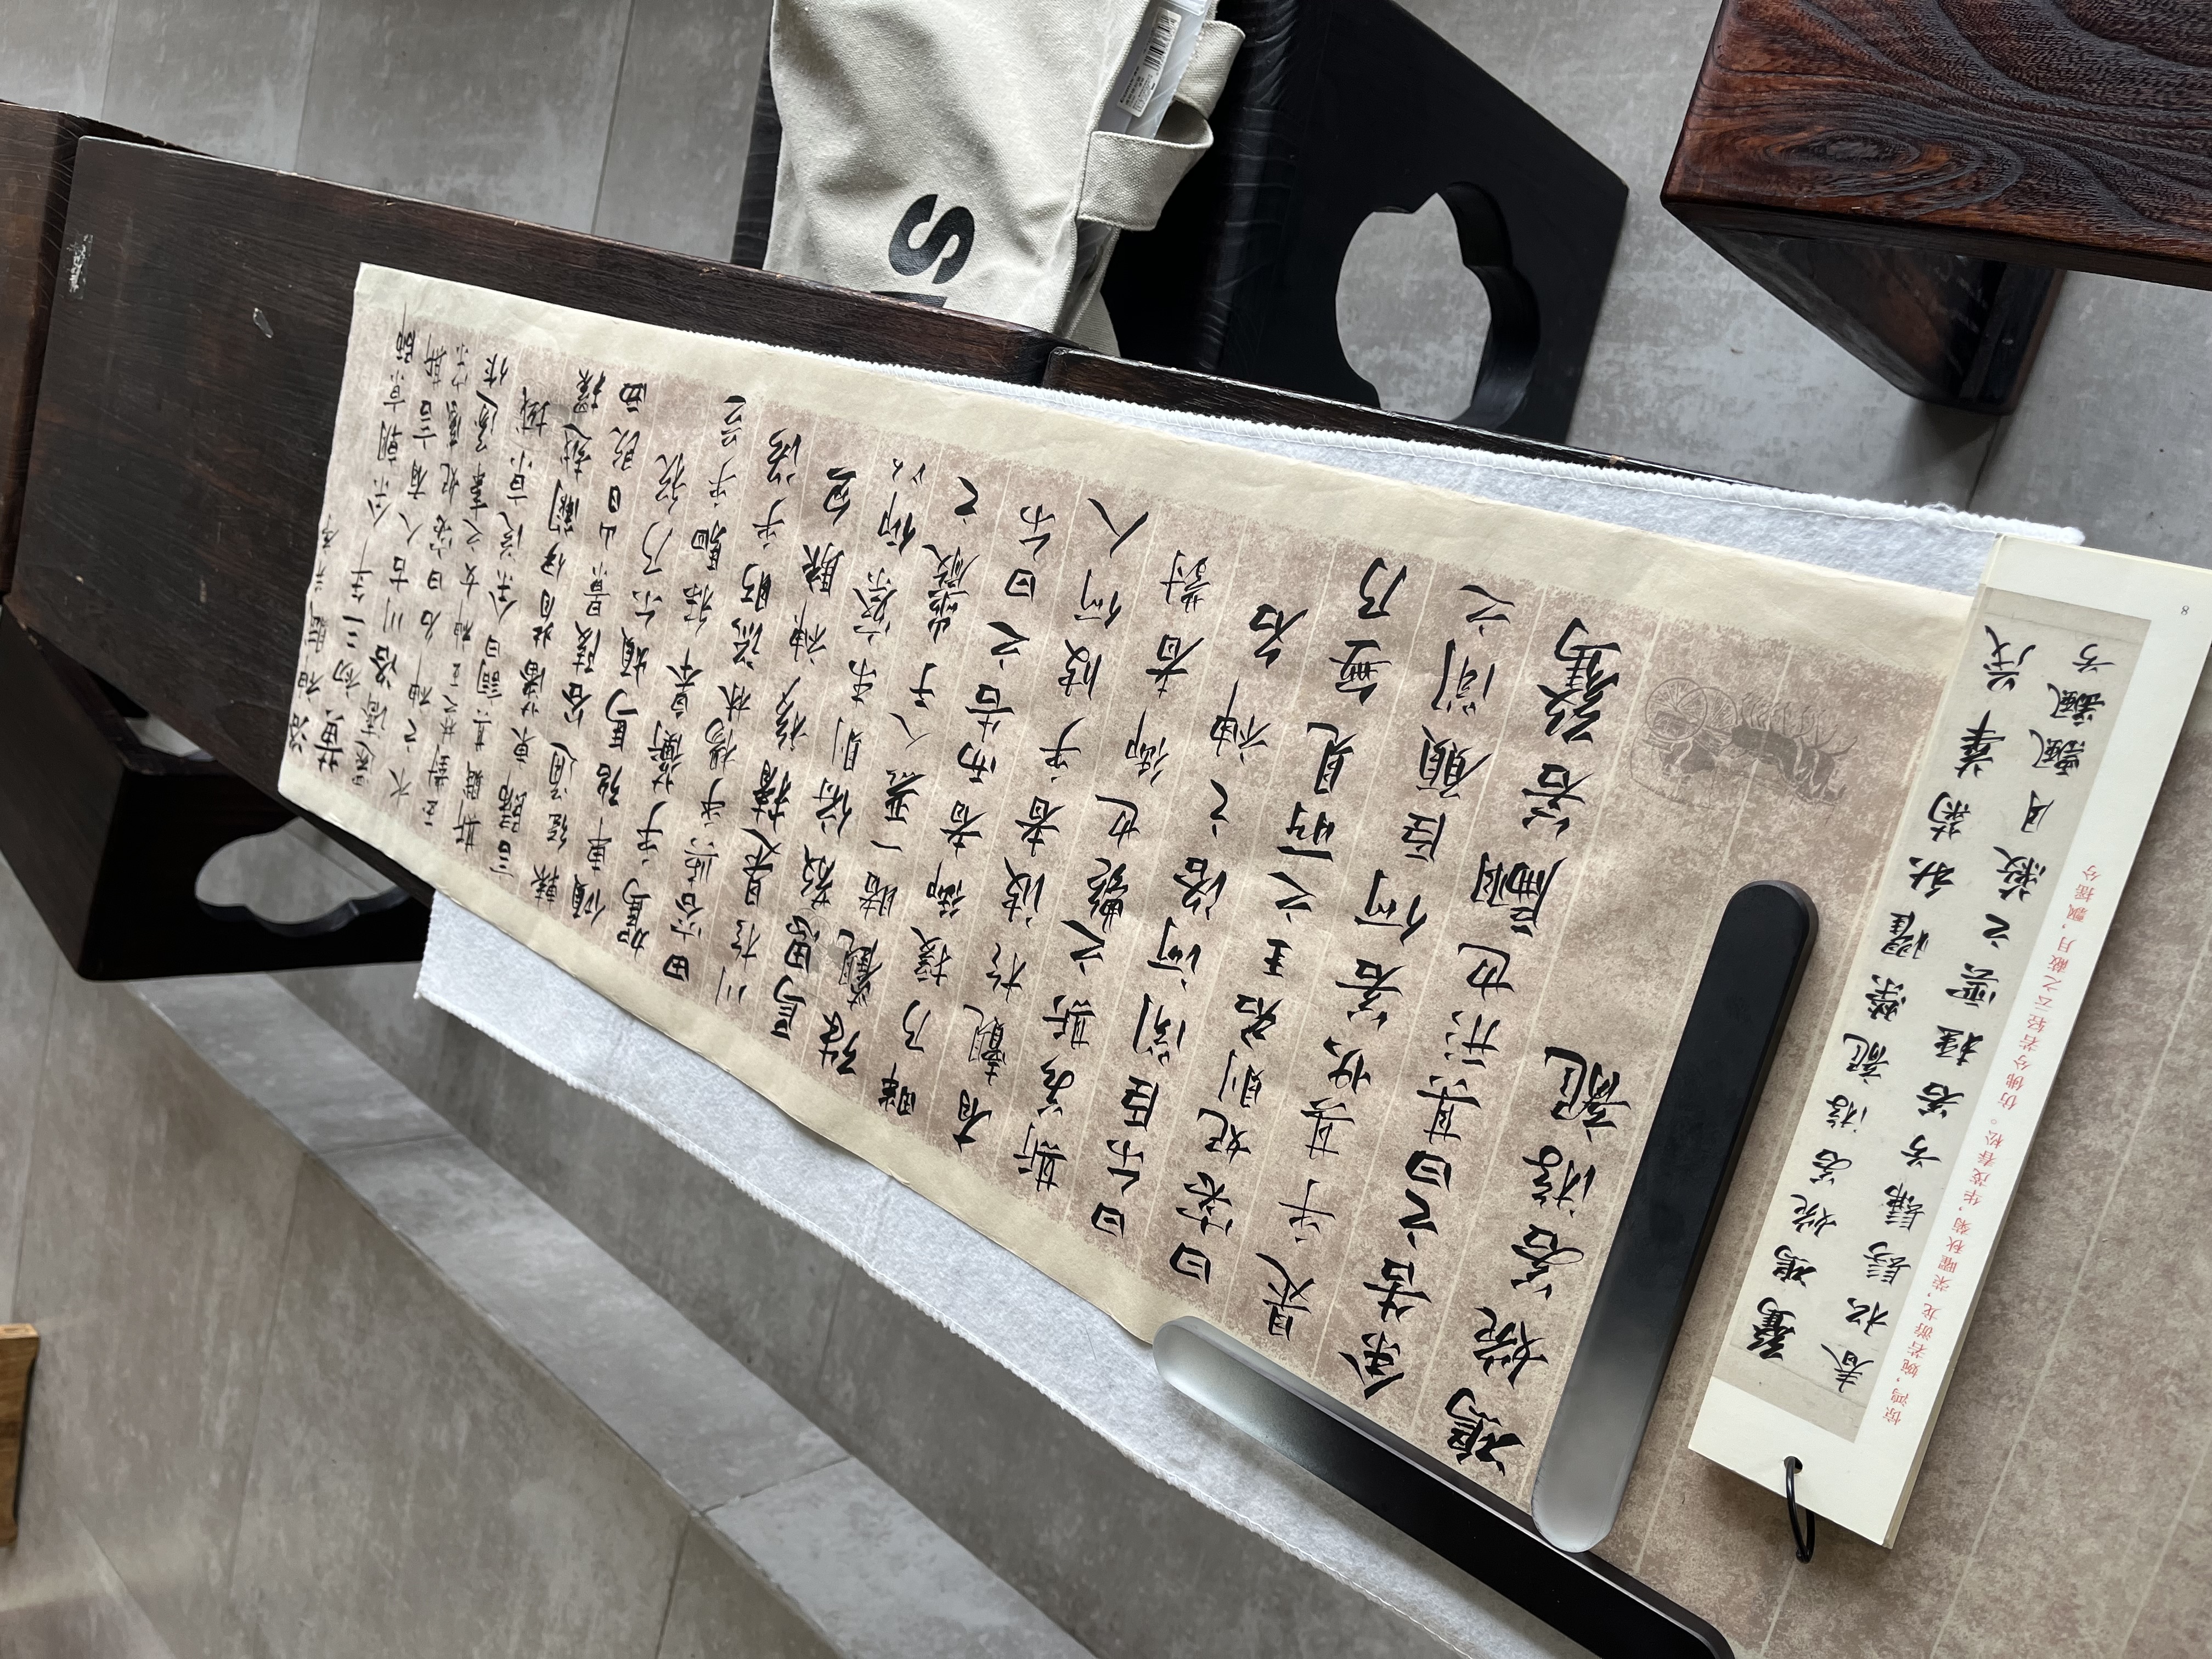 洛神賦并序
黃初三年余朝京師
還濟洛川古人有言斯
水之神名曰宓妃感宋
玉對楚王神女之事遂作
斯賦其詞曰余從京域
言歸東藩背伊闕越轘
轅經通谷陵景山日既西
傾車殆馬煩尔乃税
駕乎蘅皋秣駟乎芝
田容與乎楊林流眄乎洛
川於是精移神駭忽
焉思散俯則未察仰以
殊觀睹一麗人于巖之
畔乃援御者而告之曰尔
有覿於彼者乎彼何人
斯若斯之艷也御者對
曰尔臣聞河洛之神名
曰宓妃則君王之所見無乃
是乎其狀若何臣願聞之
余告之曰其形也翩若驚
鴻婉若游龍
驚鴻婉若游龍榮曜秋菊華茂
春松髣髴兮若輕雲之蔽月飄颻兮
惊鸿，婉若游龙，荣曜秋菊，华茂春松。仿佛兮若轻云之蔽月，飘摇兮
8
S